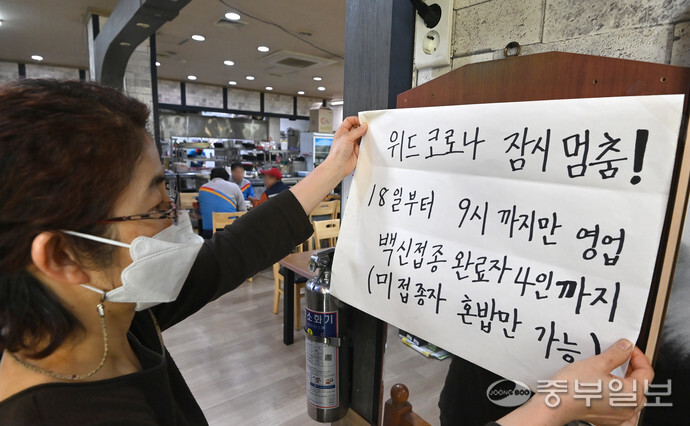 위드코로나 잠시 멈춤!
18일부터 9시 까지만 영업
백신접종 완료자 4인까지
(미접종자 혼밥만 가능)
소화기
JOONG BOO
중부일보